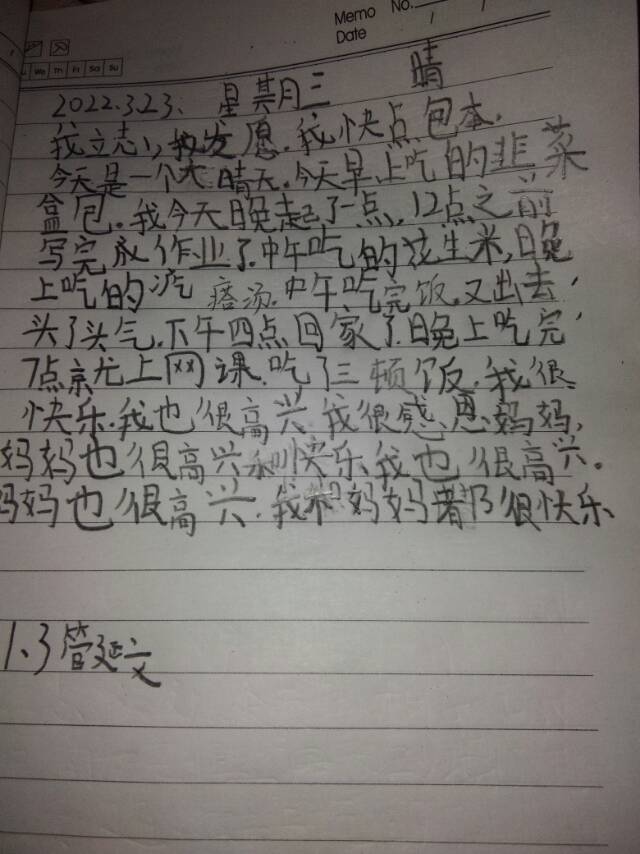 Memo No.
Date / /
We Th Fr Sa Su
2022.3.23. 星期三 晴
我立志,我发愿.我快点包本.
今天是一个大晴天.今天早上吃的韭菜
盒包.我今天晚起了一点.12点之前
写完成作业了.中午吃的花生米,晚
上吃的疙瘩汤.中午吃完饭.又出去
头了头气.下午四点回家了.晚上吃完
7点京尤上网课.吃了三顿饭.我很
快乐.我也很高兴.我很感恩妈妈,
妈妈也很高兴和快乐.我也很高兴。
妈妈也很高兴.我和妈妈都很快乐
1、3管延文